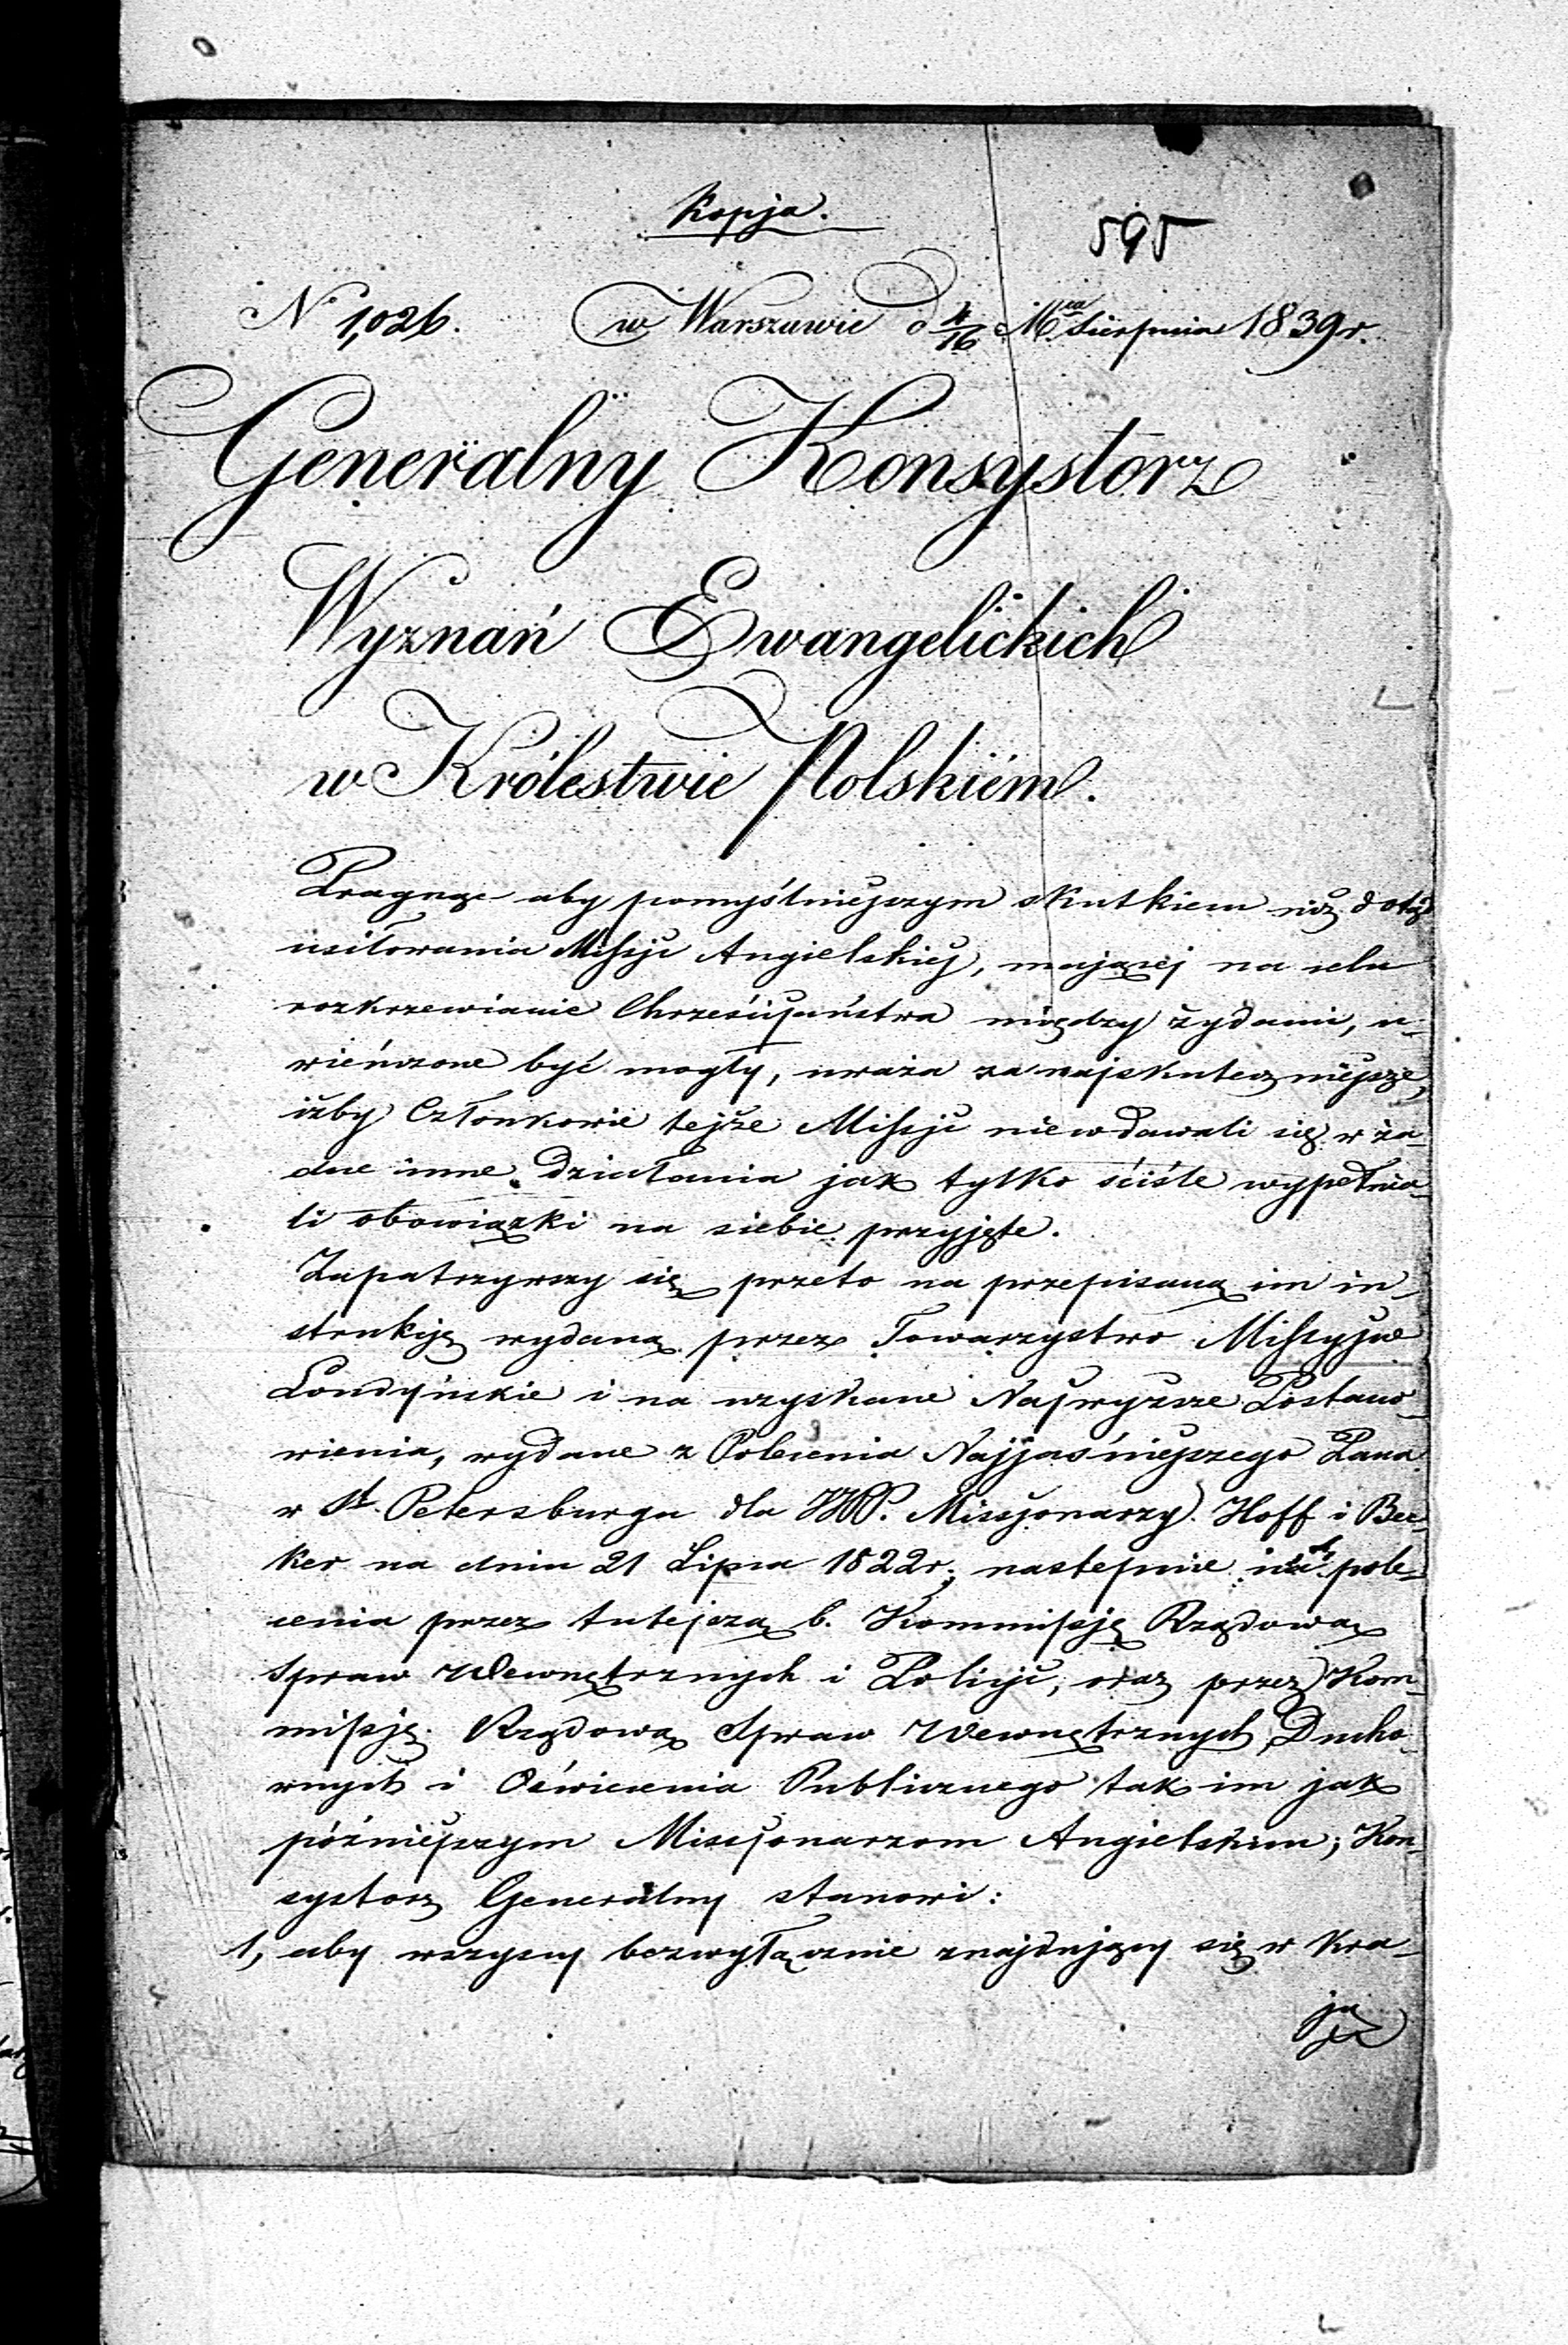 Kopja.
595
No 1,026. w Warszawie d 4/16 Mca Sierpnia 1839 r.
Generalny Konsystorz
Wyznań Ewangelickich
w Królestwie Polskiém.
Pragnąc aby pomyślniejszym skutkiem niż dotąd
usiłowania Missji Angielskiej, mającej na celu
rozkrzewianie Chrześcijaństwa między żydami, u-
wieńczone być mogły, uważa za najskuteczniejsze,
iżby Członkowie tejże Missji niewdawali się w ża-
dne inne działania jak tylko ściśle wypełnia-
li obowiązki na siebie przyjęte.
Zapatrzywszy się przeto na przepisaną im in-
strukcję wydaną przez Towarzystwo Missyjne
Londyńskie i na uzyskane Najwyższe Postano-
wienia, wydane z Polecenia Najjaśniejszego Pana
w St. Petersburgu dla WW. Missjonarzy Hoff i Bec-
ker na dniu 21 Lipca 1822 r; następnie pole-
cenia przez tutejszą b. Kommissję Rządową
Spraw Wewnętrznych i Policji, oraz przez Kom-
missję Rządową Spraw Wewnętrznych, Ducho-
wnych i Oświecenia Publicznego tak im jak
późniejszym Missjonarzom Angielskim; Kon-
systorz Generalny stanowi:
1, aby wszyscy bezwyłącznie znajdujący się w Kra-
ju